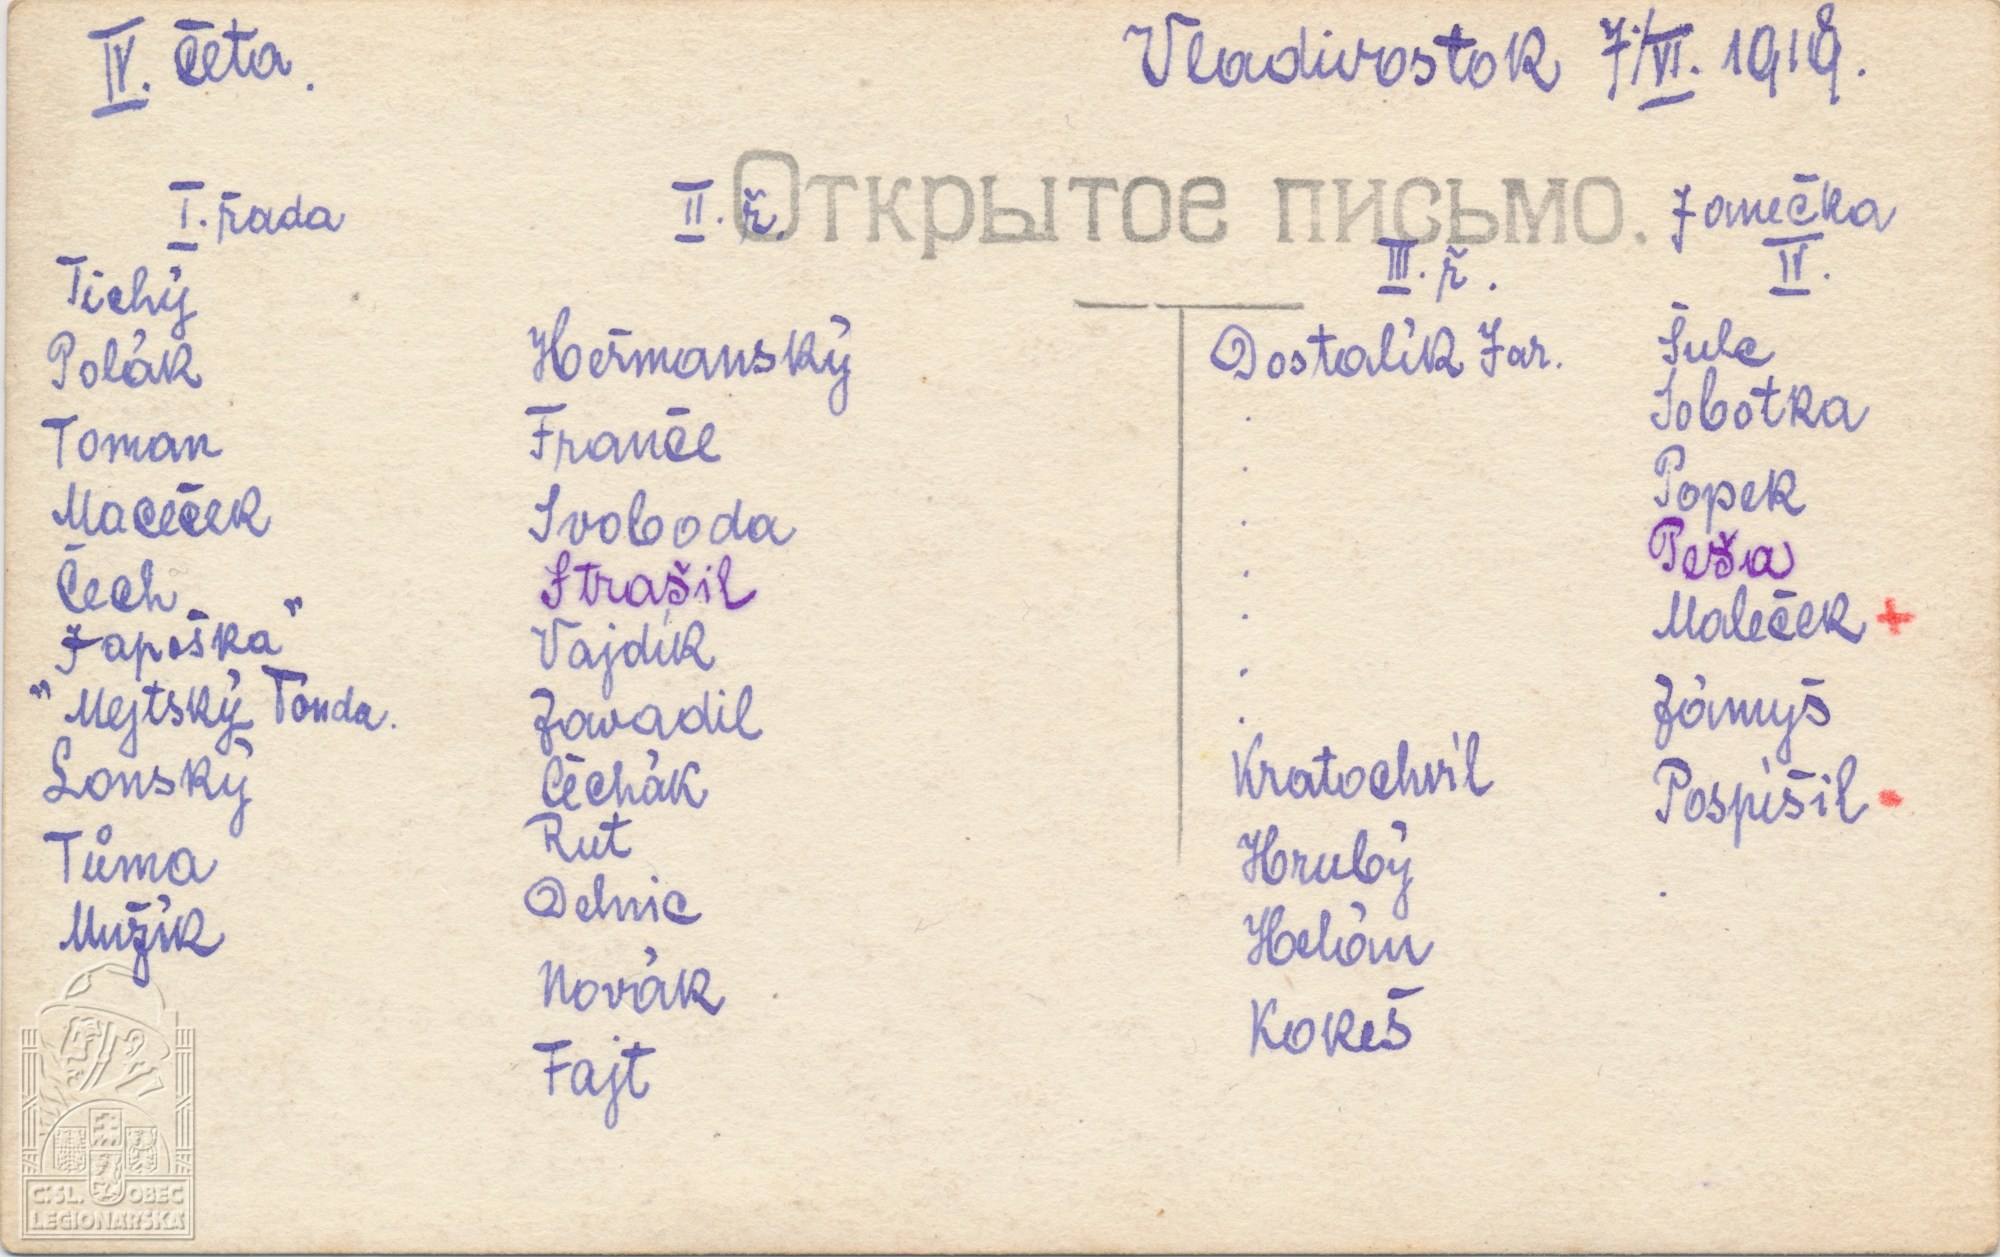 IV. četa.
Vladivostok 7./VI. 1918.
Открытое письмо.
I. řada
Tichý
Polák
Toman
Maceček
Čech
Japoška"
"Mejtský Tonda.
Lonský
Tůma
Mužík
II. ř.
Heřmanský
Franče
Svoboda
Strašil
Vajdík
Zavadil
Čechák
Rut
Delnic
Novák
Fajt
III. ř.
Dostalík Jar.
.
.
.
.
.
.
.
Kratochvíl
Hrubý
Helán
Kokeš
Janečka
IV.
Šulc
Sobotka
Popek
Peša
Maleček +
Zámyš
Pospíšil
.
Č.SL. OBEC
LEGIONÁŘSKÁ